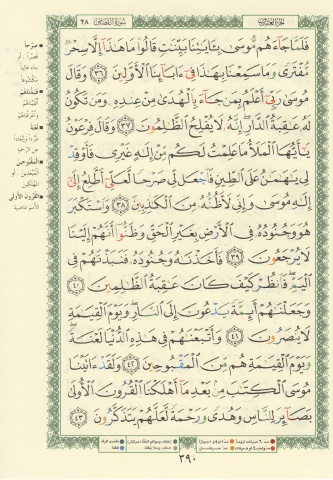 الجزء العشرون
سورة القصص
٢٨
فَلَمَّا جَآءَهُم مُّوسَىٰ بِـَٔايَٰتِنَا بَيِّنَٰتٍ قَالُوا۟ مَا هَٰذَآ إِلَّا سِحْرٌ
مُّفْتَرًى وَمَا سَمِعْنَا بِهَٰذَا فِىٓ ءَابَآئِنَا ٱلْأَوَّلِينَ ٣٦ وَقَالَ
مُوسَىٰ رَبِّىٓ أَعْلَمُ بِمَن جَآءَ بِٱلْهُدَىٰ مِنْ عِندِهِۦ وَمَن تَكُونُ
لَهُۥ عَٰقِبَةُ ٱلدَّارِ إِنَّهُۥ لَا يُفْلِحُ ٱلظَّٰلِمُونَ ٣٧ وَقَالَ فِرْعَوْنُ
يَٰٓأَيُّهَا ٱلْمَلَأُ مَا عَلِمْتُ لَكُم مِّنْ إِلَٰهٍ غَيْرِى فَأَوْقِدْ
لِى يَٰهَٰمَٰنُ عَلَى ٱلطِّينِ فَٱجْعَل لِّى صَرْحًا لَّعَلِّىٓ أَطَّلِعُ إِلَىٰٓ
إِلَٰهِ مُوسَىٰ وَإِنِّى لَأَظُنُّهُۥ مِنَ ٱلْكَٰذِبِينَ ٣٨ وَٱسْتَكْبَرَ
هُوَ وَجُنُودُهُۥ فِى ٱلْأَرْضِ بِغَيْرِ ٱلْحَقِّ وَظَنُّوٓا۟ أَنَّهُمْ إِلَيْنَا
لَا يُرْجَعُونَ ٣٩ فَأَخَذْنَٰهُ وَجُنُودَهُۥ فَنَبَذْنَٰهُمْ فِى
ٱلْيَمِّ فَٱنظُرْ كَيْفَ كَانَ عَٰقِبَةُ ٱلظَّٰلِمِينَ ٤٠
وَجَعَلْنَٰهُمْ أَئِمَّةً يَدْعُونَ إِلَى ٱلنَّارِ وَيَوْمَ ٱلْقِيَٰمَةِ
لَا يُنصَرُونَ ٤١ وَأَتْبَعْنَٰهُمْ فِى هَٰذِهِ ٱلدُّنْيَا لَعْنَةً
وَيَوْمَ ٱلْقِيَٰمَةِ هُم مِّنَ ٱلْمَقْبُوحِينَ ٤٢ وَلَقَدْ ءَاتَيْنَا
مُوسَى ٱلْكِتَٰبَ مِنۢ بَعْدِ مَآ أَهْلَكْنَا ٱلْقُرُونَ ٱلْأُولَىٰ
بَصَآئِرَ لِلنَّاسِ وَهُدًى وَرَحْمَةً لَّعَلَّهُمْ يَتَذَكَّرُونَ ٤٣
صرحا
فنبذناهم
لعنة
المقبوحين
القرون الأولى
٣٩٠